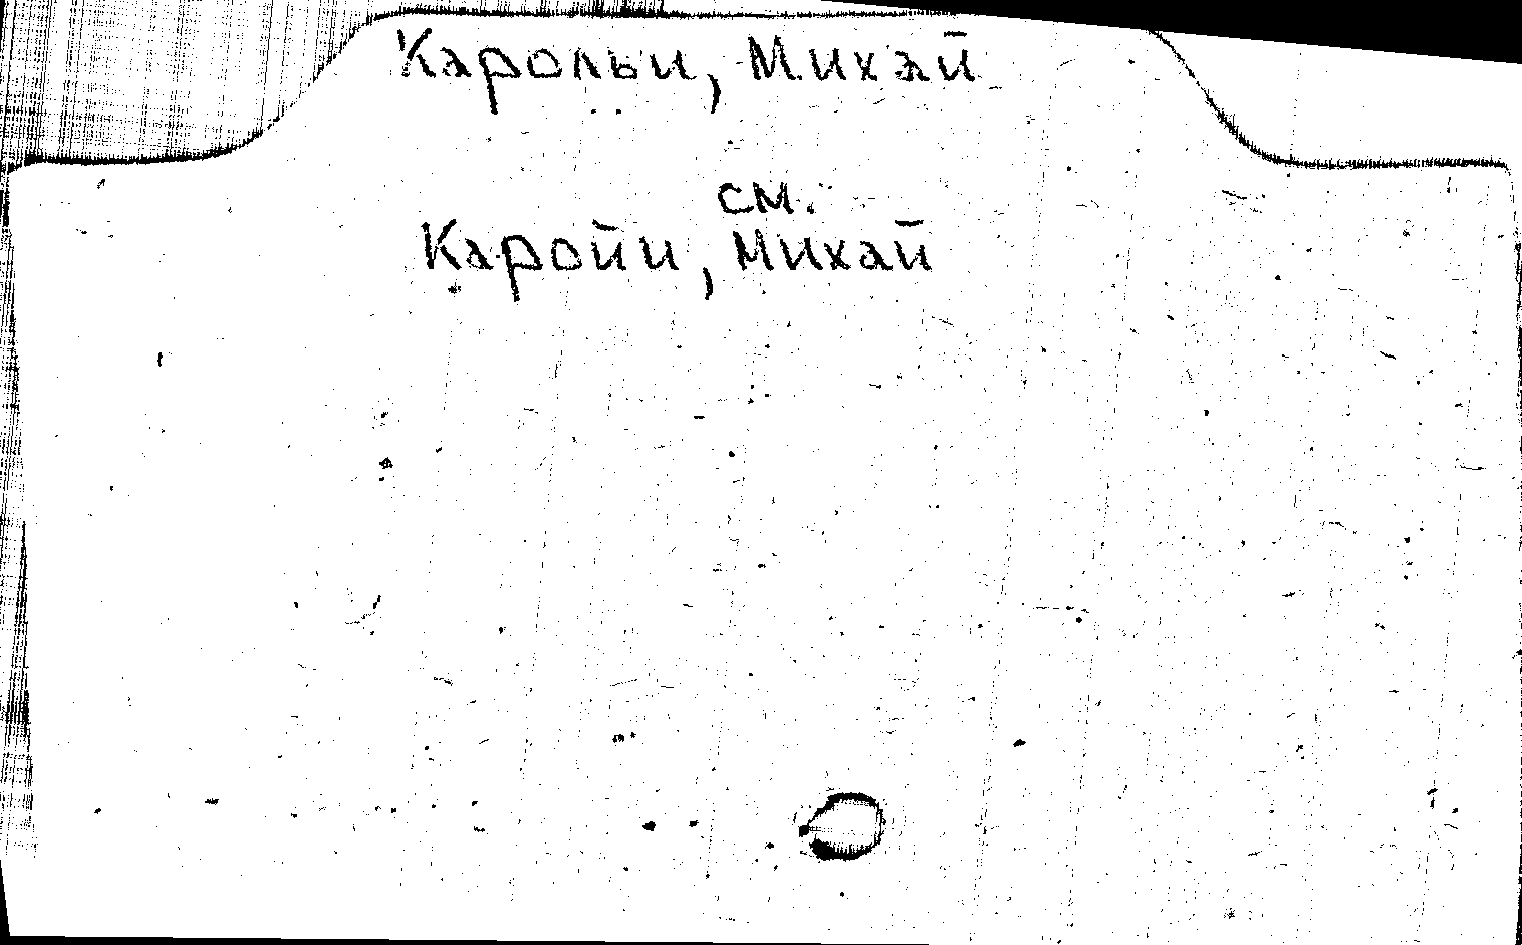 Карольи, Михай
см.
Каройи, Михай